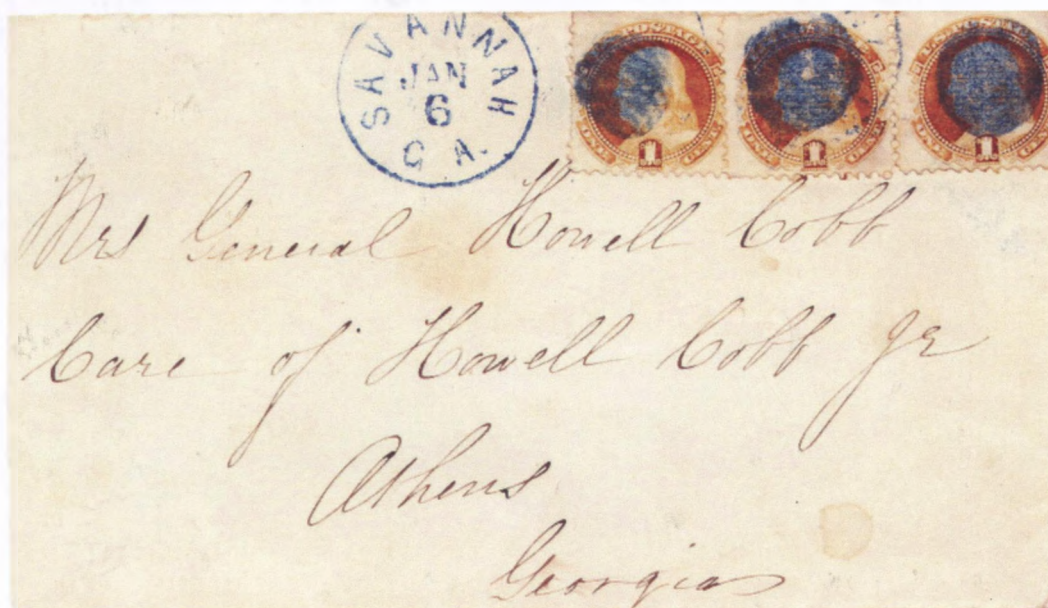 SAVANNAH
JAN
6
GA.
1 1 1
Mrs General Howell Cobb
Care of Howell Cobb Jr
Athens
Georgia